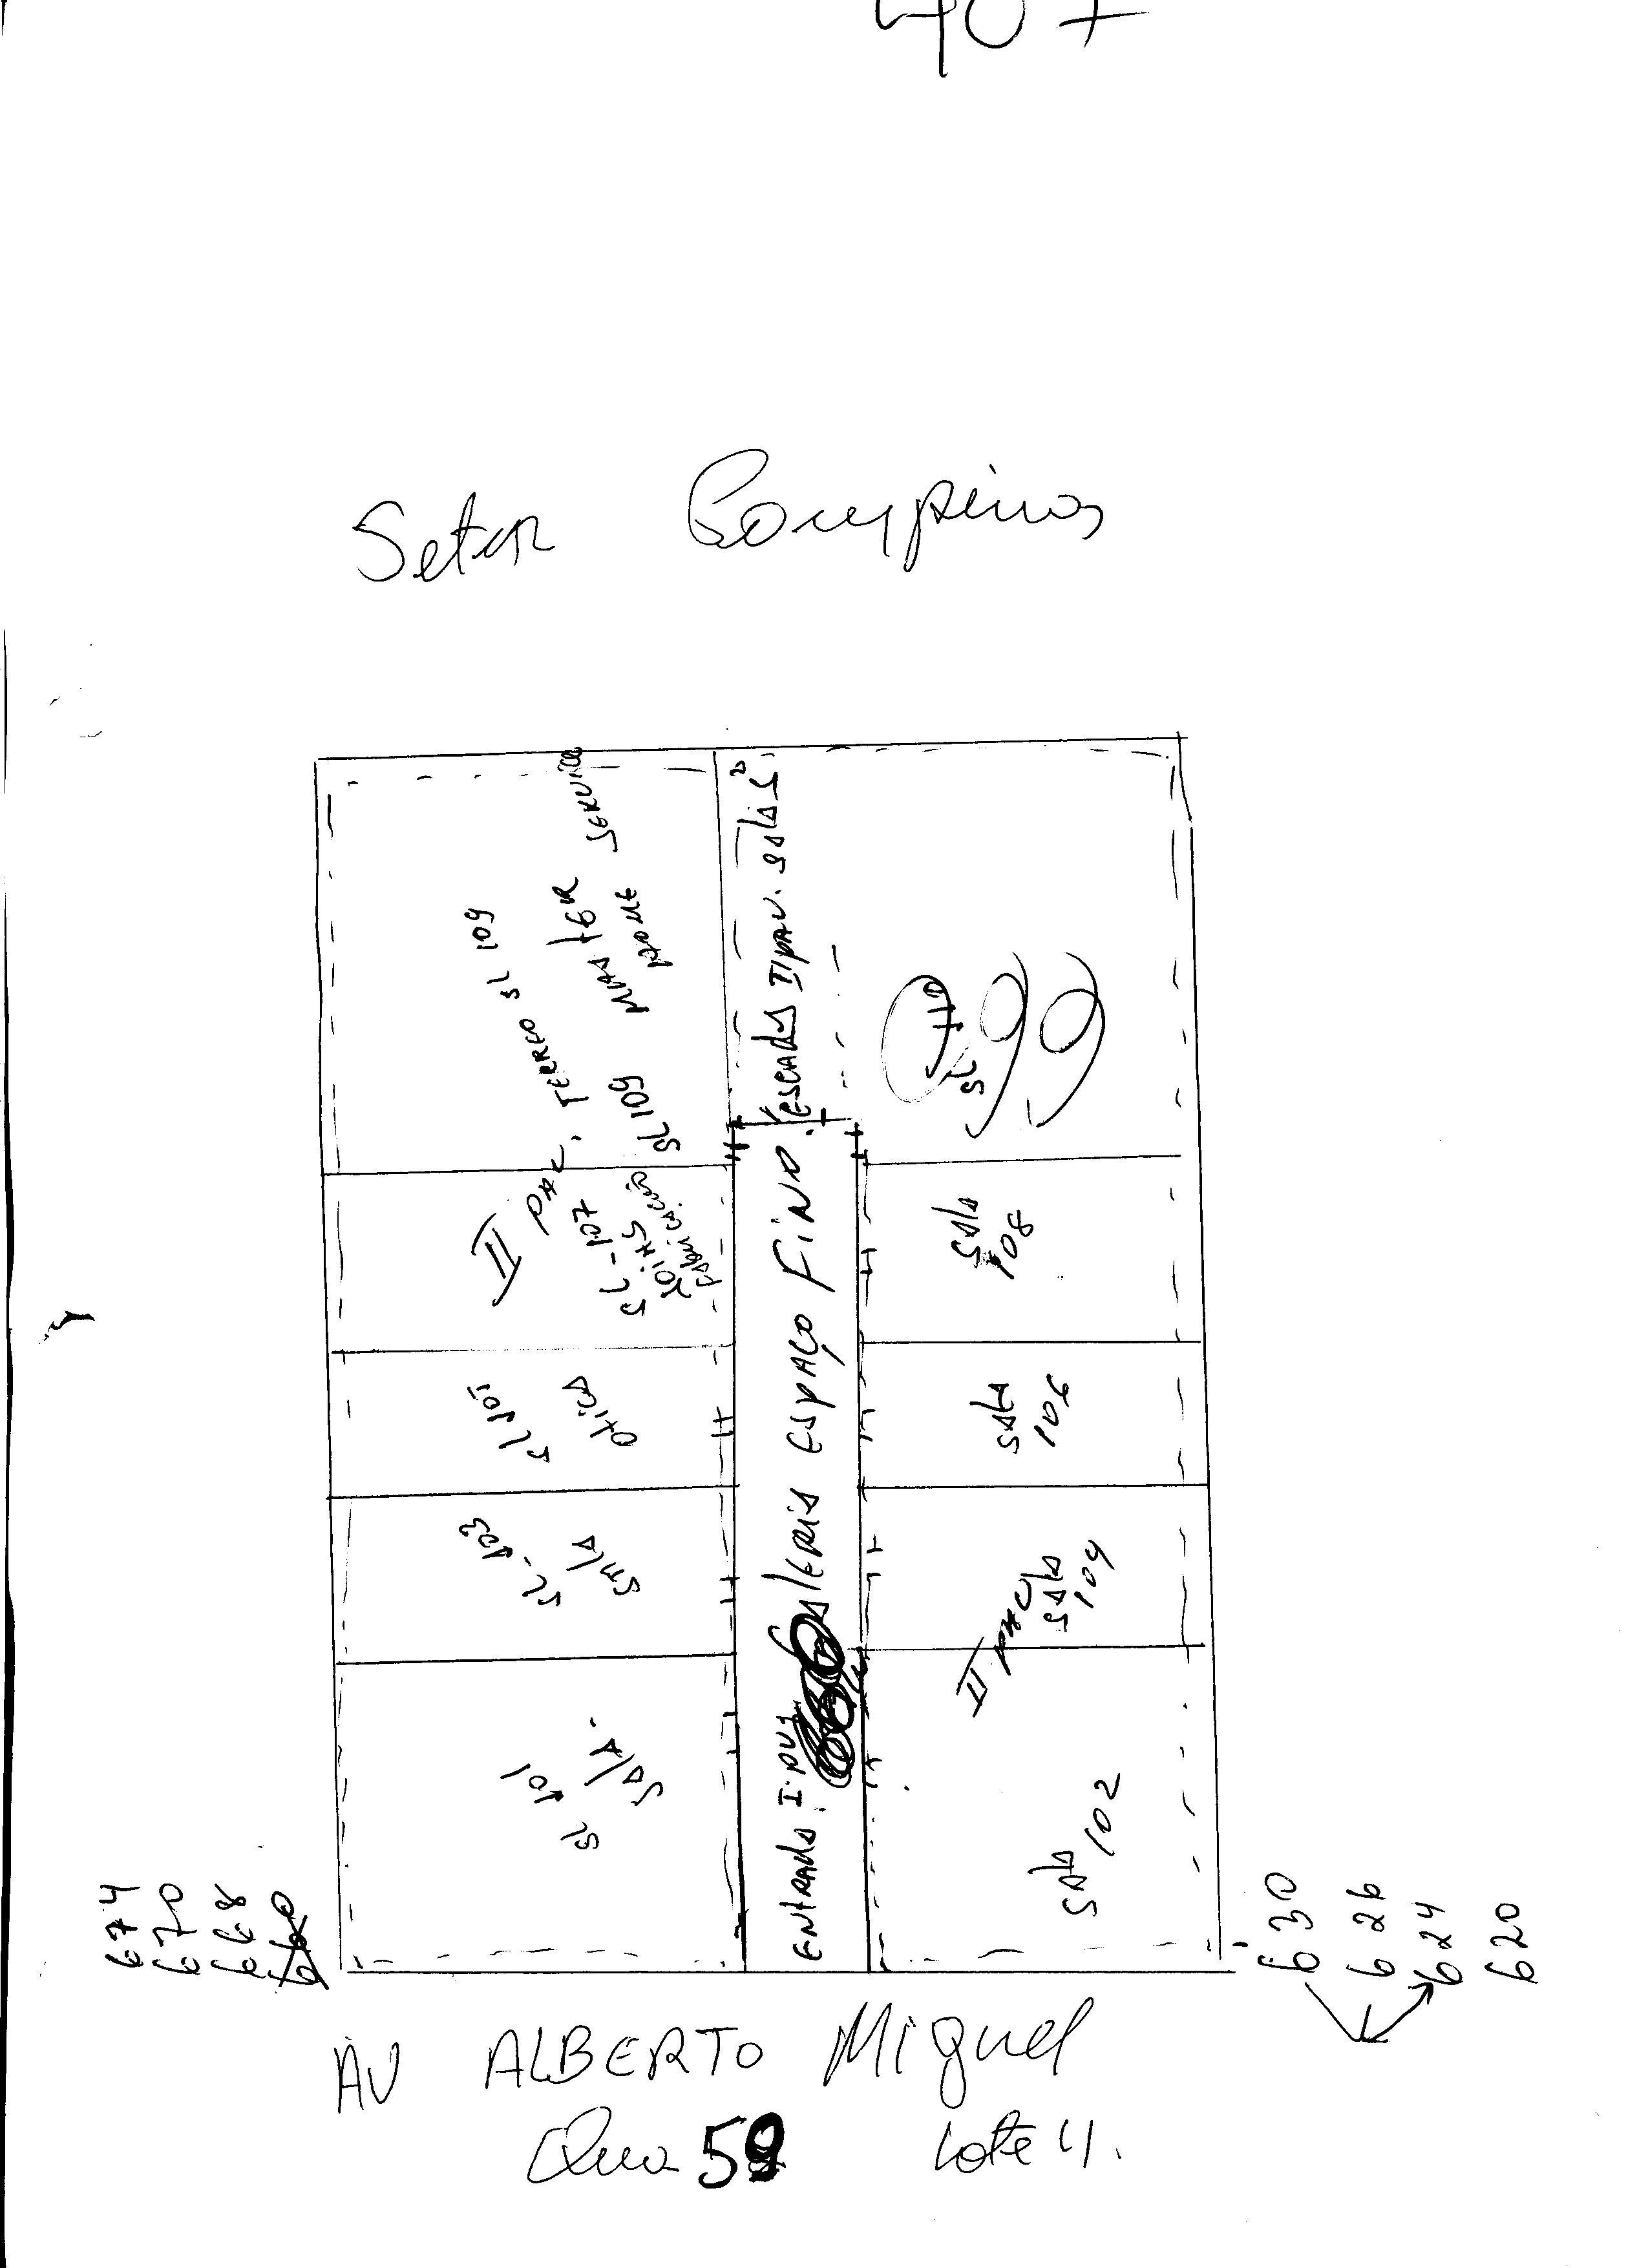 407
Setor Campinas
II PAV. TERREO SL 109
SL 109 MASTER
HOME SERVICE
escadas II PAV. salas
SL 110
SL-107
Fabricação
Sala
108
SL 105
Otica
Sala
106
SL-103
Sala
II PAV
Sala
104
SL 101
Sala
Sala
102
Entrada I PAV Galeria Espaço Fino
674
670
668
660
630
626
624
620
AV ALBERTO Miguel
Qua 59 Lote 11.